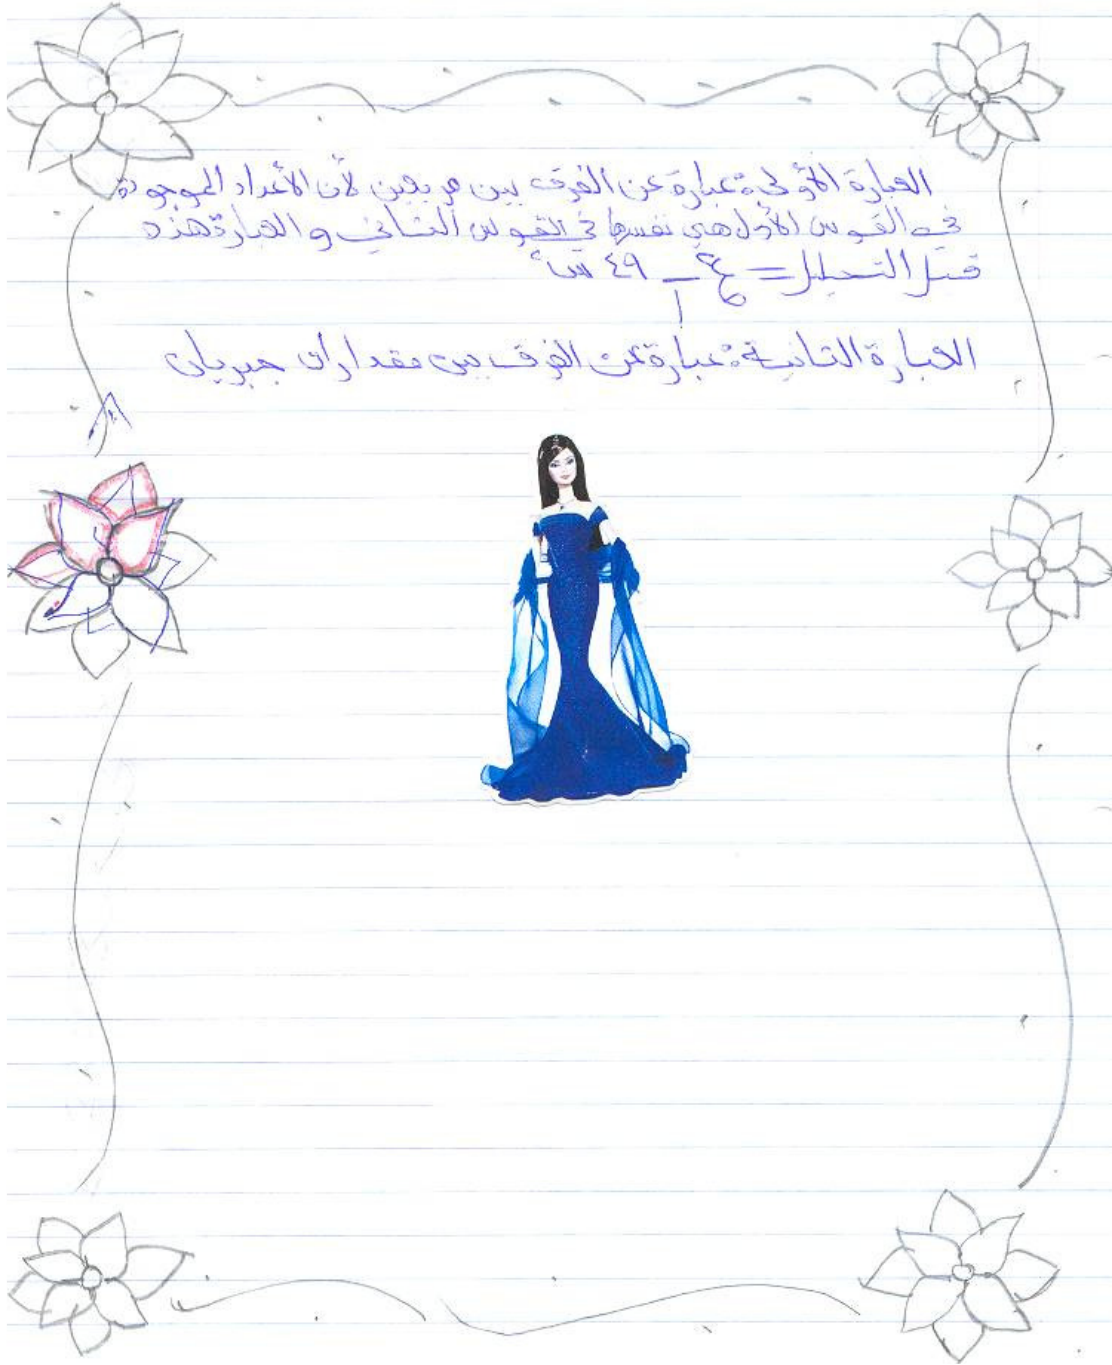 العبارة الأولى: عبارة عن الفرق بين مربعين لأن الأعداد الموجودة
في القوس الأول هي نفسها في القوس الثاني والعبارة هذه
قبل التحليل = ٤٩ س٢
العبارة الثانية: عبارة عن الفرق بين مقداران جبريان